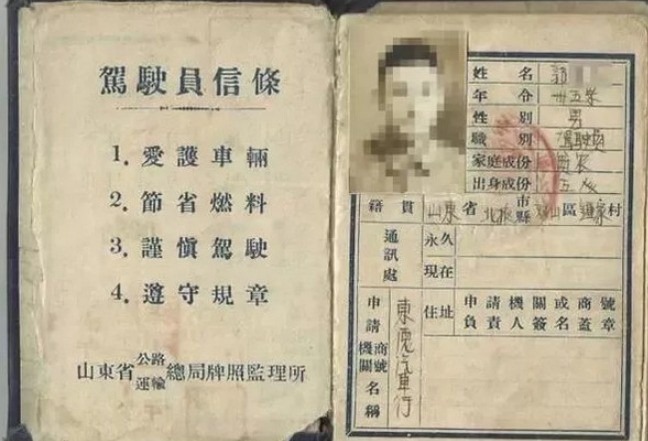 駕駛員信條
1. 愛護車輛
2. 節省燃料
3. 謹慎駕駛
4. 遵守規章
山東省公路運輸總局牌照監理所
姓名 郭
年令 卅五岁
性別 男
職別 駕駛員
家庭成份
出身成份
籍貫 山東省 市縣 區 村
通訊處 永久
現在
申請機關商號名稱 東魁汽車行
住址
申請機關或商號負責人簽名蓋章